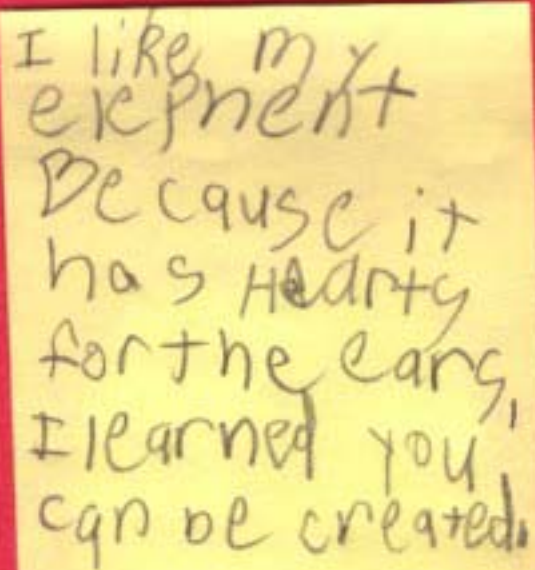 I like my
elephent
Because it
has Hearts
for the ears,
I learned you
can be created.